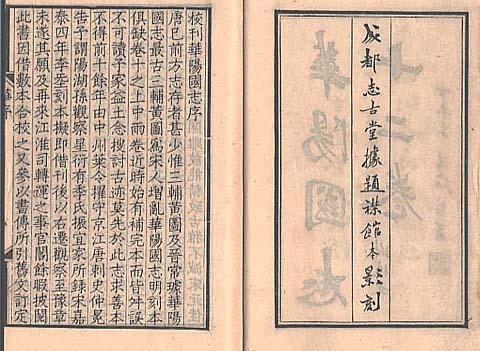 成都志古堂據題襟館本影刻
校刊華陽國志序
唐已前方志存者甚少惟三輔黃圖及晉常璩華陽
國志最古三輔黃圖爲宋人增亂華陽國志明刻本
俱缺卷十之上中兩卷近時始有補完本而皆舛誤
不可讀予家益土念搜討古迹莫先於此志求善本
不得前十餘年由中州棄令攉守京江唐刺史仲冕
告予謂陽湖孫觀察星衍有季氏振宜家所録宋嘉
泰四年李𡊮刻本擬即借刊後以右遷觀察至豫章
未遂其願及再來江淮司轉運之事官閣餘暇披閱
此書因借數本合校之又參以書傳所引舊文訂定